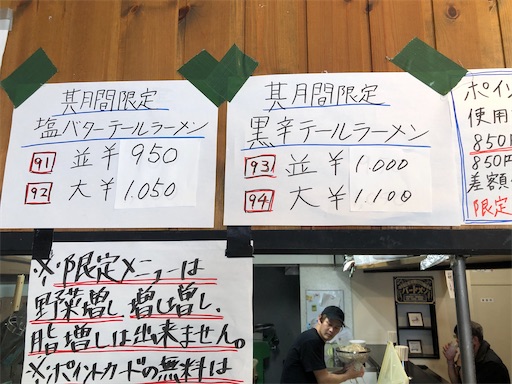 其月間限定
塩バターテールラーメン
91 並 ¥950
92 大 ¥1.050
其月間限定
黒辛テールラーメン
93 並 ¥1.000
94 大 ¥1.100
ポイン
使用
850円
850円
差額
限定
※限定メニューは
野菜増し増し増し、
脂増しは出来ません。
※ポイントカードの無料は